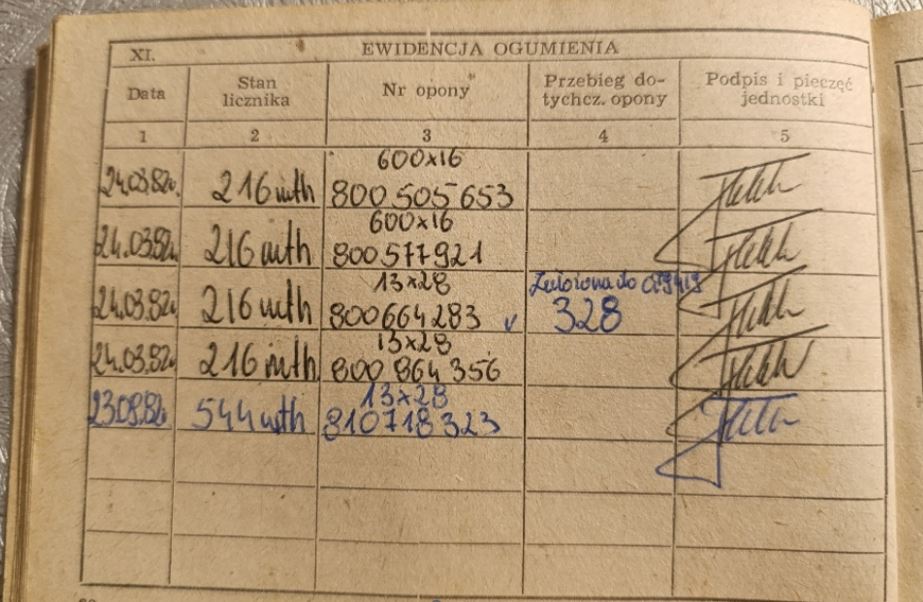 XI. EWIDENCJA OGUMIENIA
Data Stan licznika Nr opony Przebieg do-tychcz. opony Podpis i pieczęć jednostki
1 2 3 4 5
600x16
24.03.82r. 216 mth 800 505 653
600x16
24.03.82r. 216 mth 800577921
13x28
24.03.82r. 216 mth 800664283 328
13x28
24.03.82r. 216 mth 800 864 356
13x28
23.09.82r. 544 mth 810718323